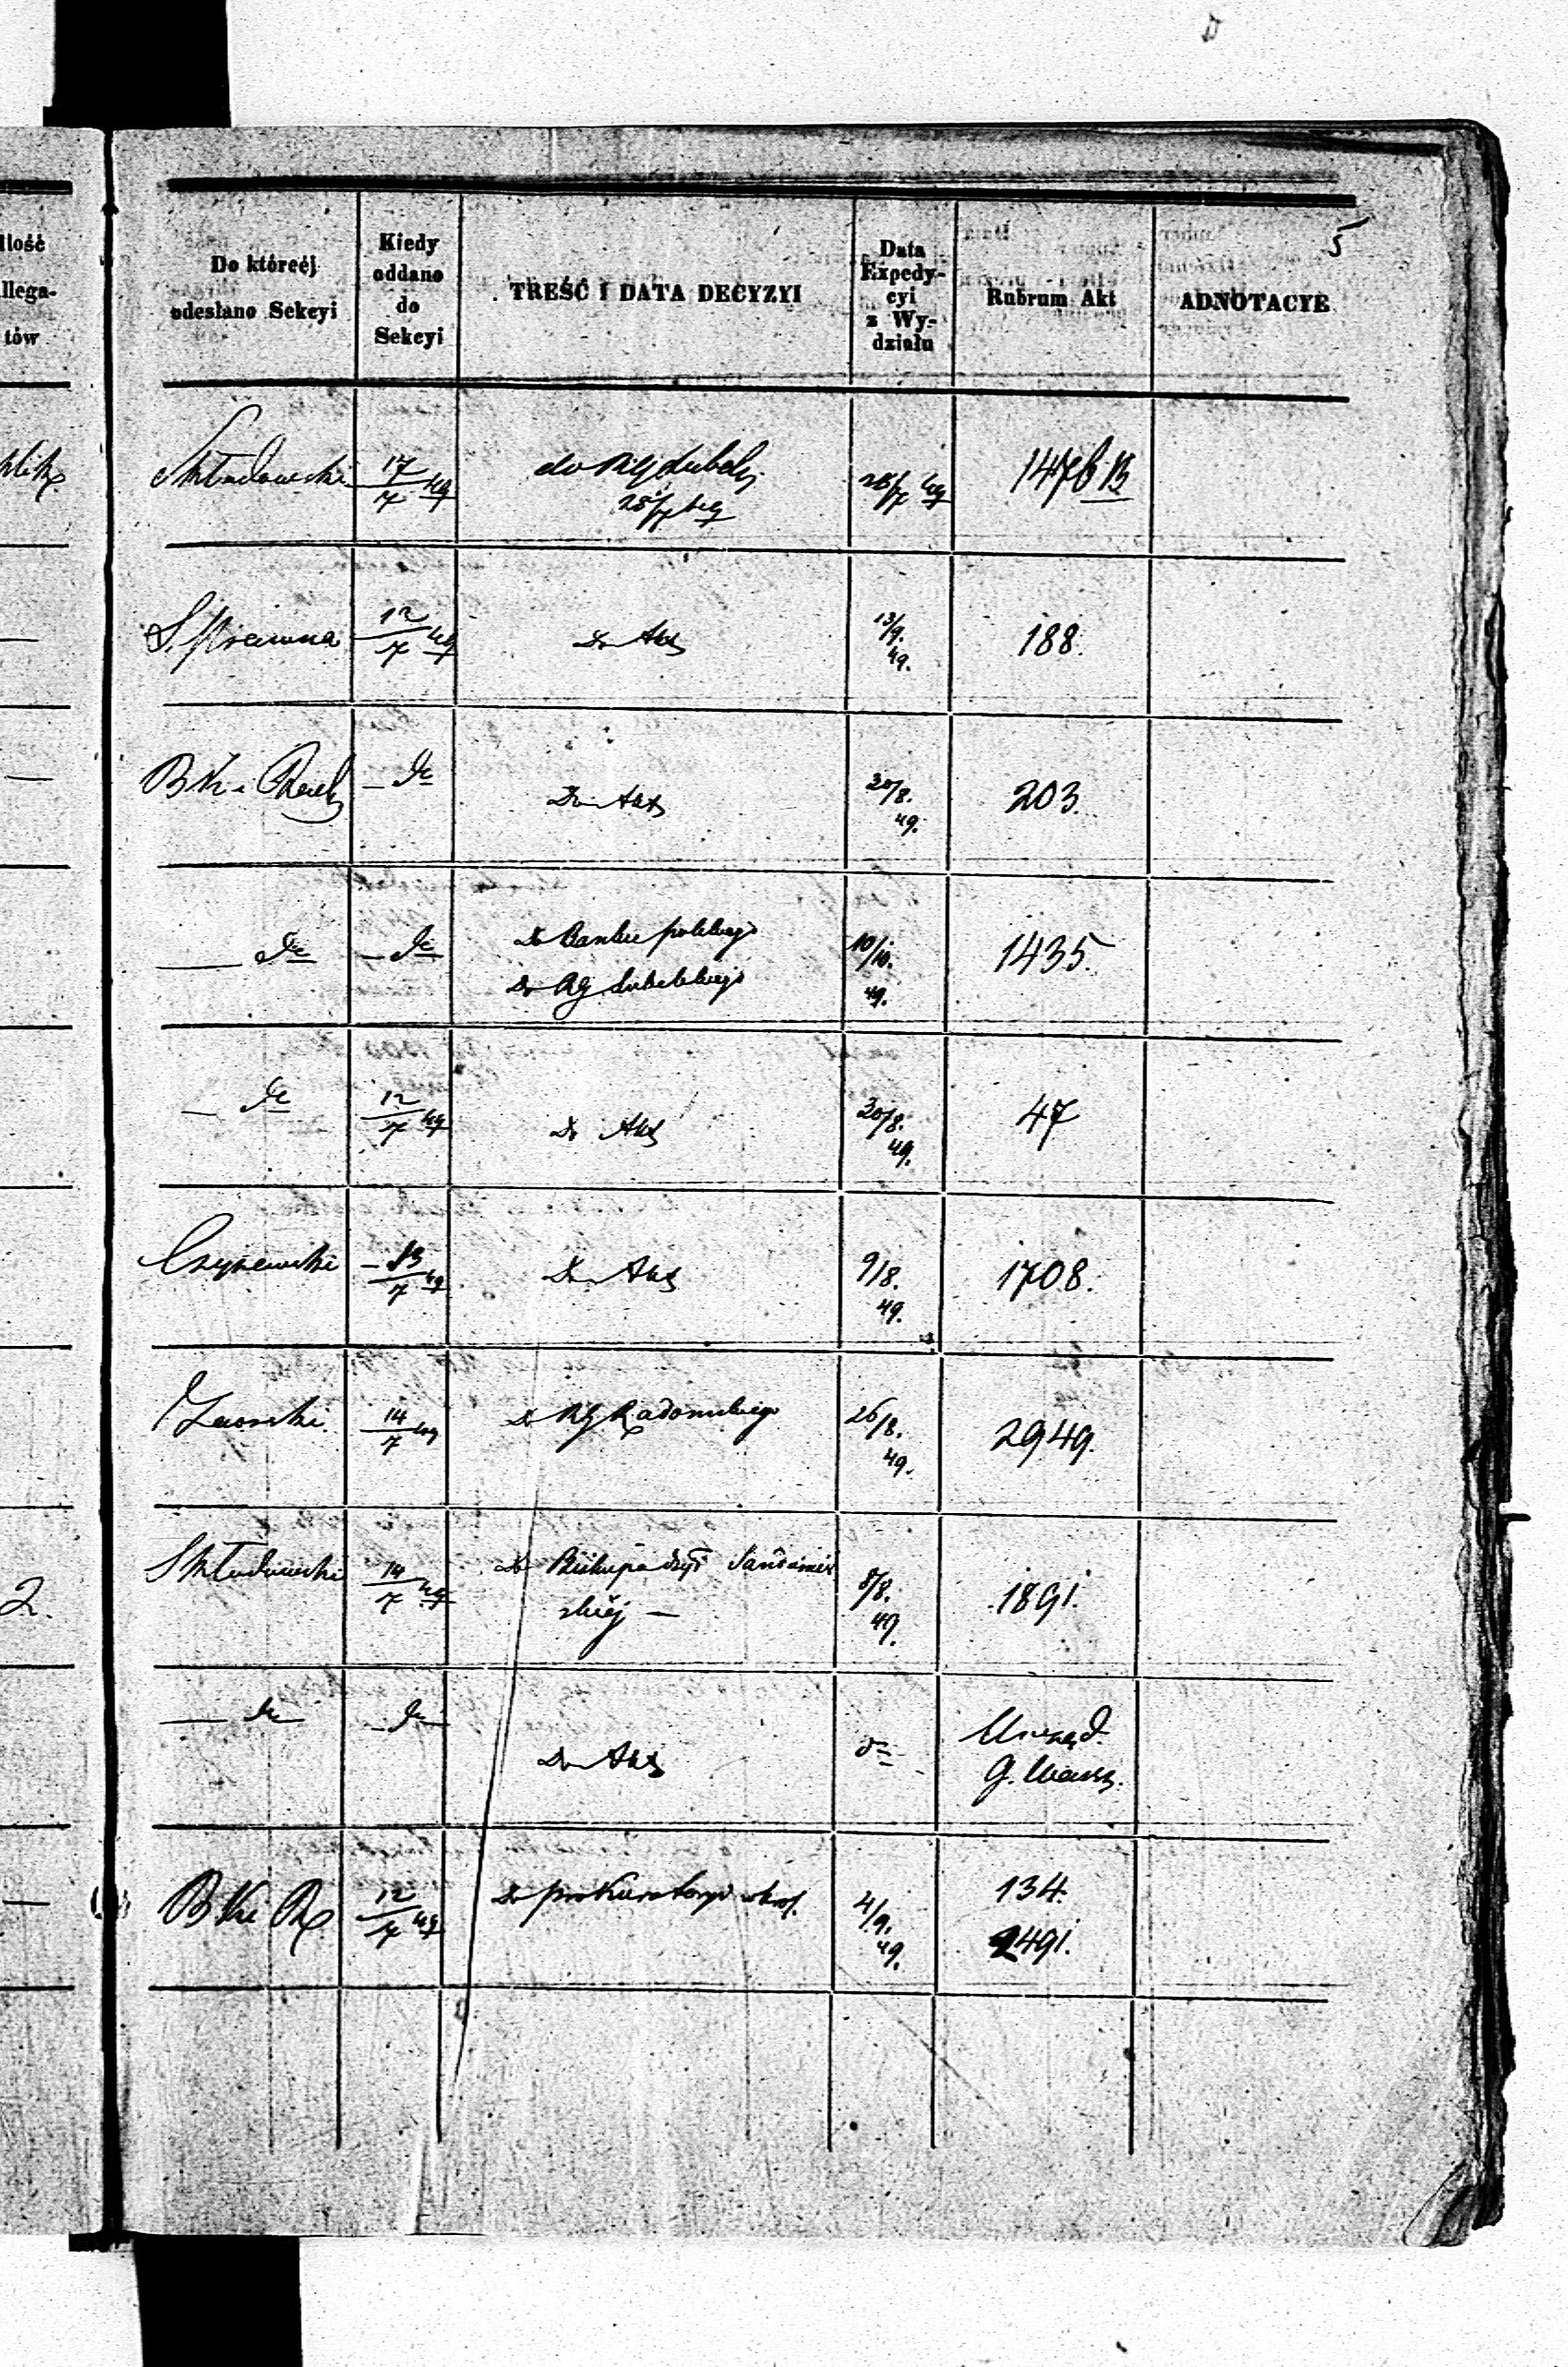 5
Ilość
llega-
tów
Do któreéj
odesłano Sekcyi
Kiedy
oddano
do
Sekcyi
TREŚĆ I DATA DECYZYI
Data
Expedy-
cyi
z Wy-
działu
Rubrum Akt
ADNOTACYE
Skłodowski
17/7 49
do RG Lubels
28/7 49
28/7 49
1476 B
S. Prawna
12/7 49
Do Akt
13/9.
49.
188.
B K i Rach
— do
Do Akt
30/8.
49.
203.
— do
— do
Do Banku polskiego
Do RG Lubelskiego
10/10.
49.
1435.
— do
12/7 49
Do Akt
30/8.
49.
47
Czyżewski
13/7 49
Do Akt
9/8.
49.
1708.
14/7 49
Do RG Radomskiego
26/8.
49.
2949.
2.
Skłodowski
14/7 49
Do Biskupa Sandomir
skiéj —
8/8.
49.
1891.
— do
— do
Do Akt
do
Urząd.
G. Warsz.
B K i R
12/7 49
Do prokuratoryi
4/9.
49.
134.
2491.